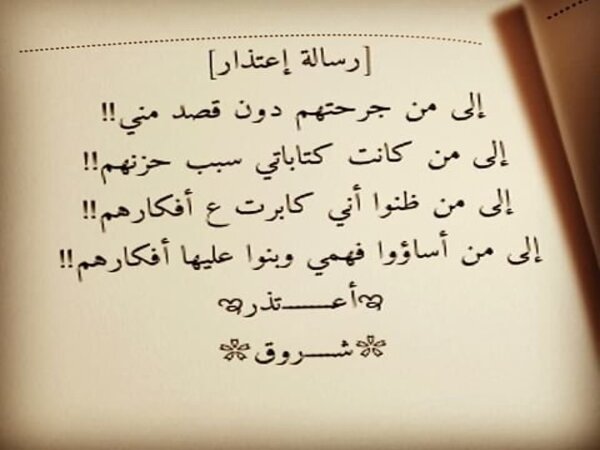 [رسالة إعتذار]
إلى من جرحتهم دون قصد مني!!
إلى من كانت كتاباتي سبب حزنهم!!
إلى من ظنوا أني كابرت ع أفكارهم!!
إلى من أساؤوا فهمي وبنوا عليها أفكارهم!!
أعـــــتذر
شـــروق